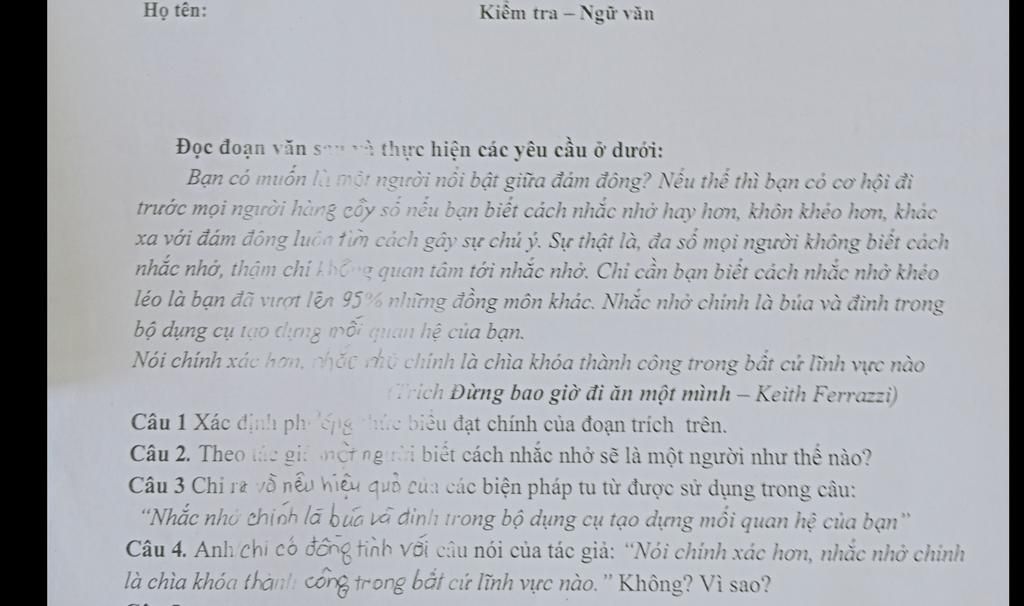 Họ tên: Kiểm tra – Ngữ văn
Đọc đoạn văn sau và thực hiện các yêu cầu ở dưới:
Bạn có muốn là một người nổi bật giữa đám đông? Nếu thế thì bạn có cơ hội đi
trước mọi người hàng cây số nếu bạn biết cách nhắc nhở hay hơn, khôn khéo hơn, khác
xa với đám đông luôn tìm cách gây sự chú ý. Sự thật là, đa số mọi người không biết cách
nhắc nhở, thậm chí không quan tâm tới nhắc nhở. Chỉ cần bạn biết cách nhắc nhở khéo
léo là bạn đã vượt lên 95% những đồng môn khác. Nhắc nhở chính là búa và đinh trong
bộ dụng cụ tạo dựng mối quan hệ của bạn.
Nói chính xác hơn, nhắc nhở chính là chìa khóa thành công trong bất cứ lĩnh vực nào
(Trích Đừng bao giờ đi ăn một mình – Keith Ferrazzi)
Câu 1 Xác định phương thức biểu đạt chính của đoạn trích trên.
Câu 2. Theo tác giả một người biết cách nhắc nhở sẽ là một người như thế nào?
Câu 3 Chỉ ra và nêu hiệu quả của các biện pháp tu từ được sử dụng trong câu:
“Nhắc nhở chính là búa và đinh trong bộ dụng cụ tạo dựng mối quan hệ của bạn”
Câu 4. Anh/chị có đồng tình với câu nói của tác giả: “Nói chính xác hơn, nhắc nhở chính
là chìa khóa thành công trong bất cứ lĩnh vực nào.” Không? Vì sao?